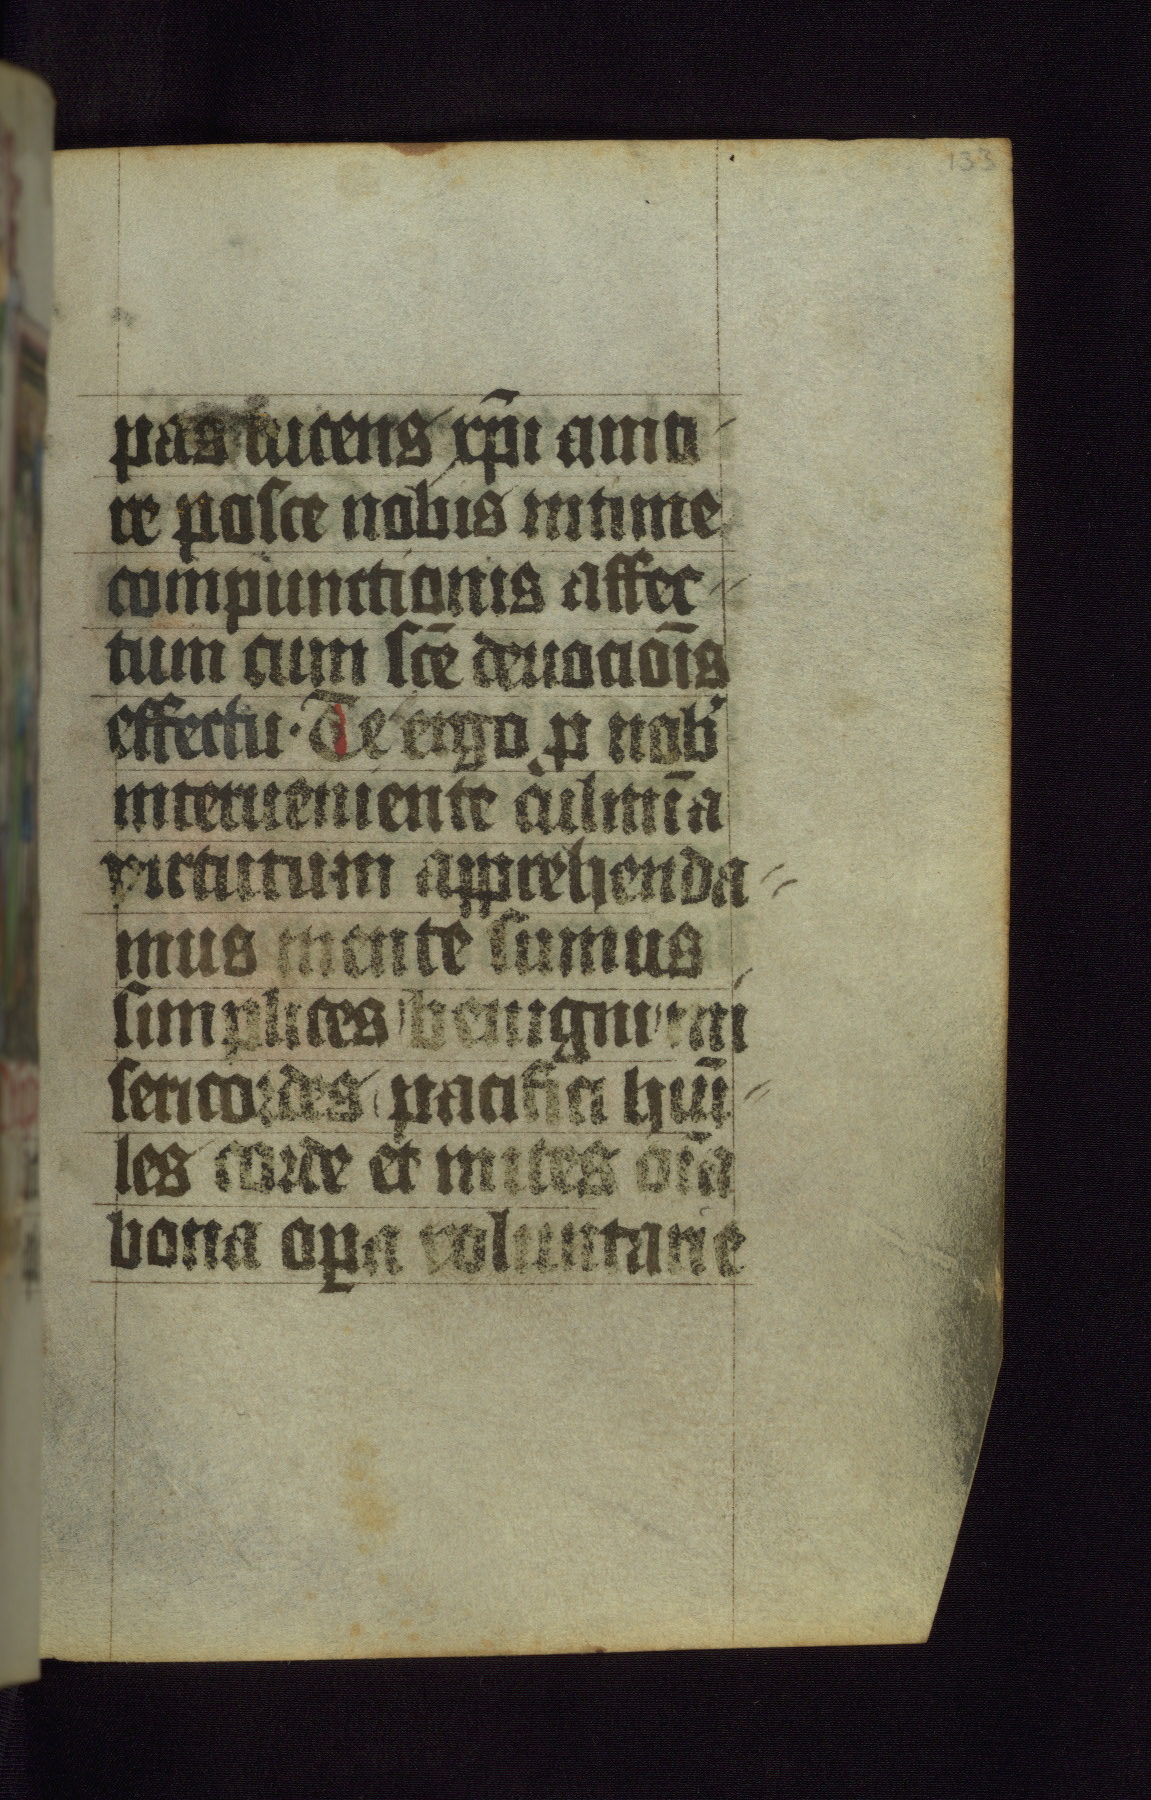 133
pas lucens xp̄i amti
re posce nobis intime
compunctionis affec
tum cum sc̄e deuocioīs
effectu · Te ergo ꝓ nob'
interueniente culmīa
virtutum apprehenda
mus mente sumus
simplices benigni mi
sericordes pacifici hūi
les corde et mites oīa
bona oꝑa voluntarie